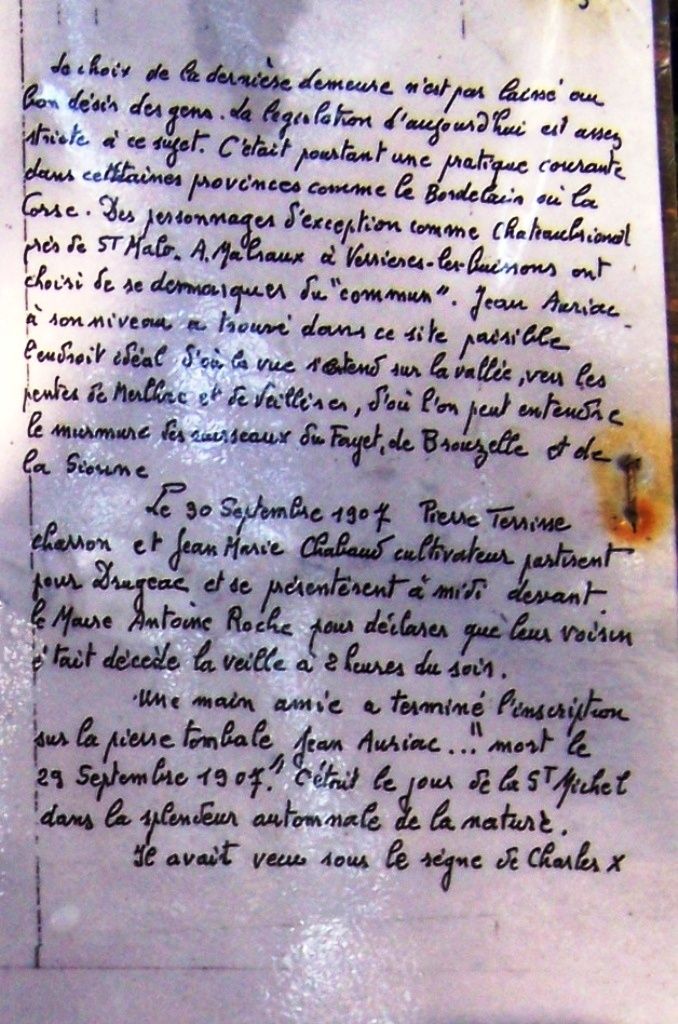 Le choix de la dernière demeure n'est pas laissé au
bon désir des gens. La legislation d'aujourd'hui est assez
stricte à ce sujet. C'était pourtant une pratique courante
dans certaines provinces comme le Bordelais ou la
Corse. Des personnages d'exception comme Chateaubriand
près de ST Malo. A. Malraux à Verrieres-les-buissons ont
choisi de se demarquer du "commun". Jean Auriac
à son niveau a trouvé dans ce site paisible
l'endroit idéal d'où la vue s'étend sur la vallée, vers les
pentes de Merlhac et de Veillères, d'où l'on peut entendre
le murmure des ruisseaux du Fayet, de Brouzelle et de
la Sionne
Le 30 Septembre 1907 Pierre Terrisse
charron et Jean Marie Chabaud cultivateur partirent
pour Drugeac et se présentèrent à midi devant
le Maire Antoine Roche pour déclarer que leur voisin
était décédé la veille à 2 heures du soir.
Une main amie a terminé l'inscription
sur la pierre tombale Jean Auriac..." mort le
29 Septembre 1907." C'était le jour de la ST Michel
dans la splendeur automnale de la nature.
Il avait vecu sous le règne de Charles X